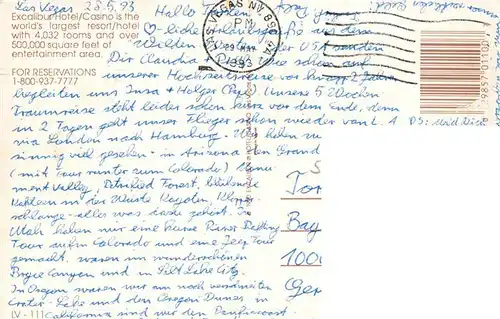 Las Vegas 28.5.93
Excalibur Hotel/Casino is the
world's largest resort/hotel
with 4,032 rooms and over
500,000 square feet of
entertainment area.
FOR RESERVATIONS
1-800-937-7777
Hallo
liebe Urlaubsgrüße aus dem
Wilden der USA senden
Dir Claudia + Peter. Wie schon auf
unserer Hochzeitsreise vor knapp 2 Jahren
begleiten uns Insa + Holger. Unsere 5 Wochen
Traumreise steht leider schon kurz vor dem Ende, denn
in 2 Tagen geht unser Flieger schon wieder von L.A.
via London nach Hamburg. Wir haben
sinnig viel gesehen - in Arizona den Grand
(mit Tour runter zum Colorado) Monu-
ment Valley, Petrified Forest, blühende
Kakteen in der Wüste, Kojoten, Klapper-
schlange - alles was dazu gehört. In
Utah haben wir eine kurze River Rafting
Tour auf'm Colorado und eine Jeep Tour
gemacht, waren im wunderschönen
Bryce Canyon und in Salt Lake City.
In Oregon waren wir am noch verschneiten
Crater-Lake und den Oregon Dunes in
California sind wir den
PS: Meld Dich
LAS VEGAS NV
PM
1993
LV - 111
Bay
1000
Ger